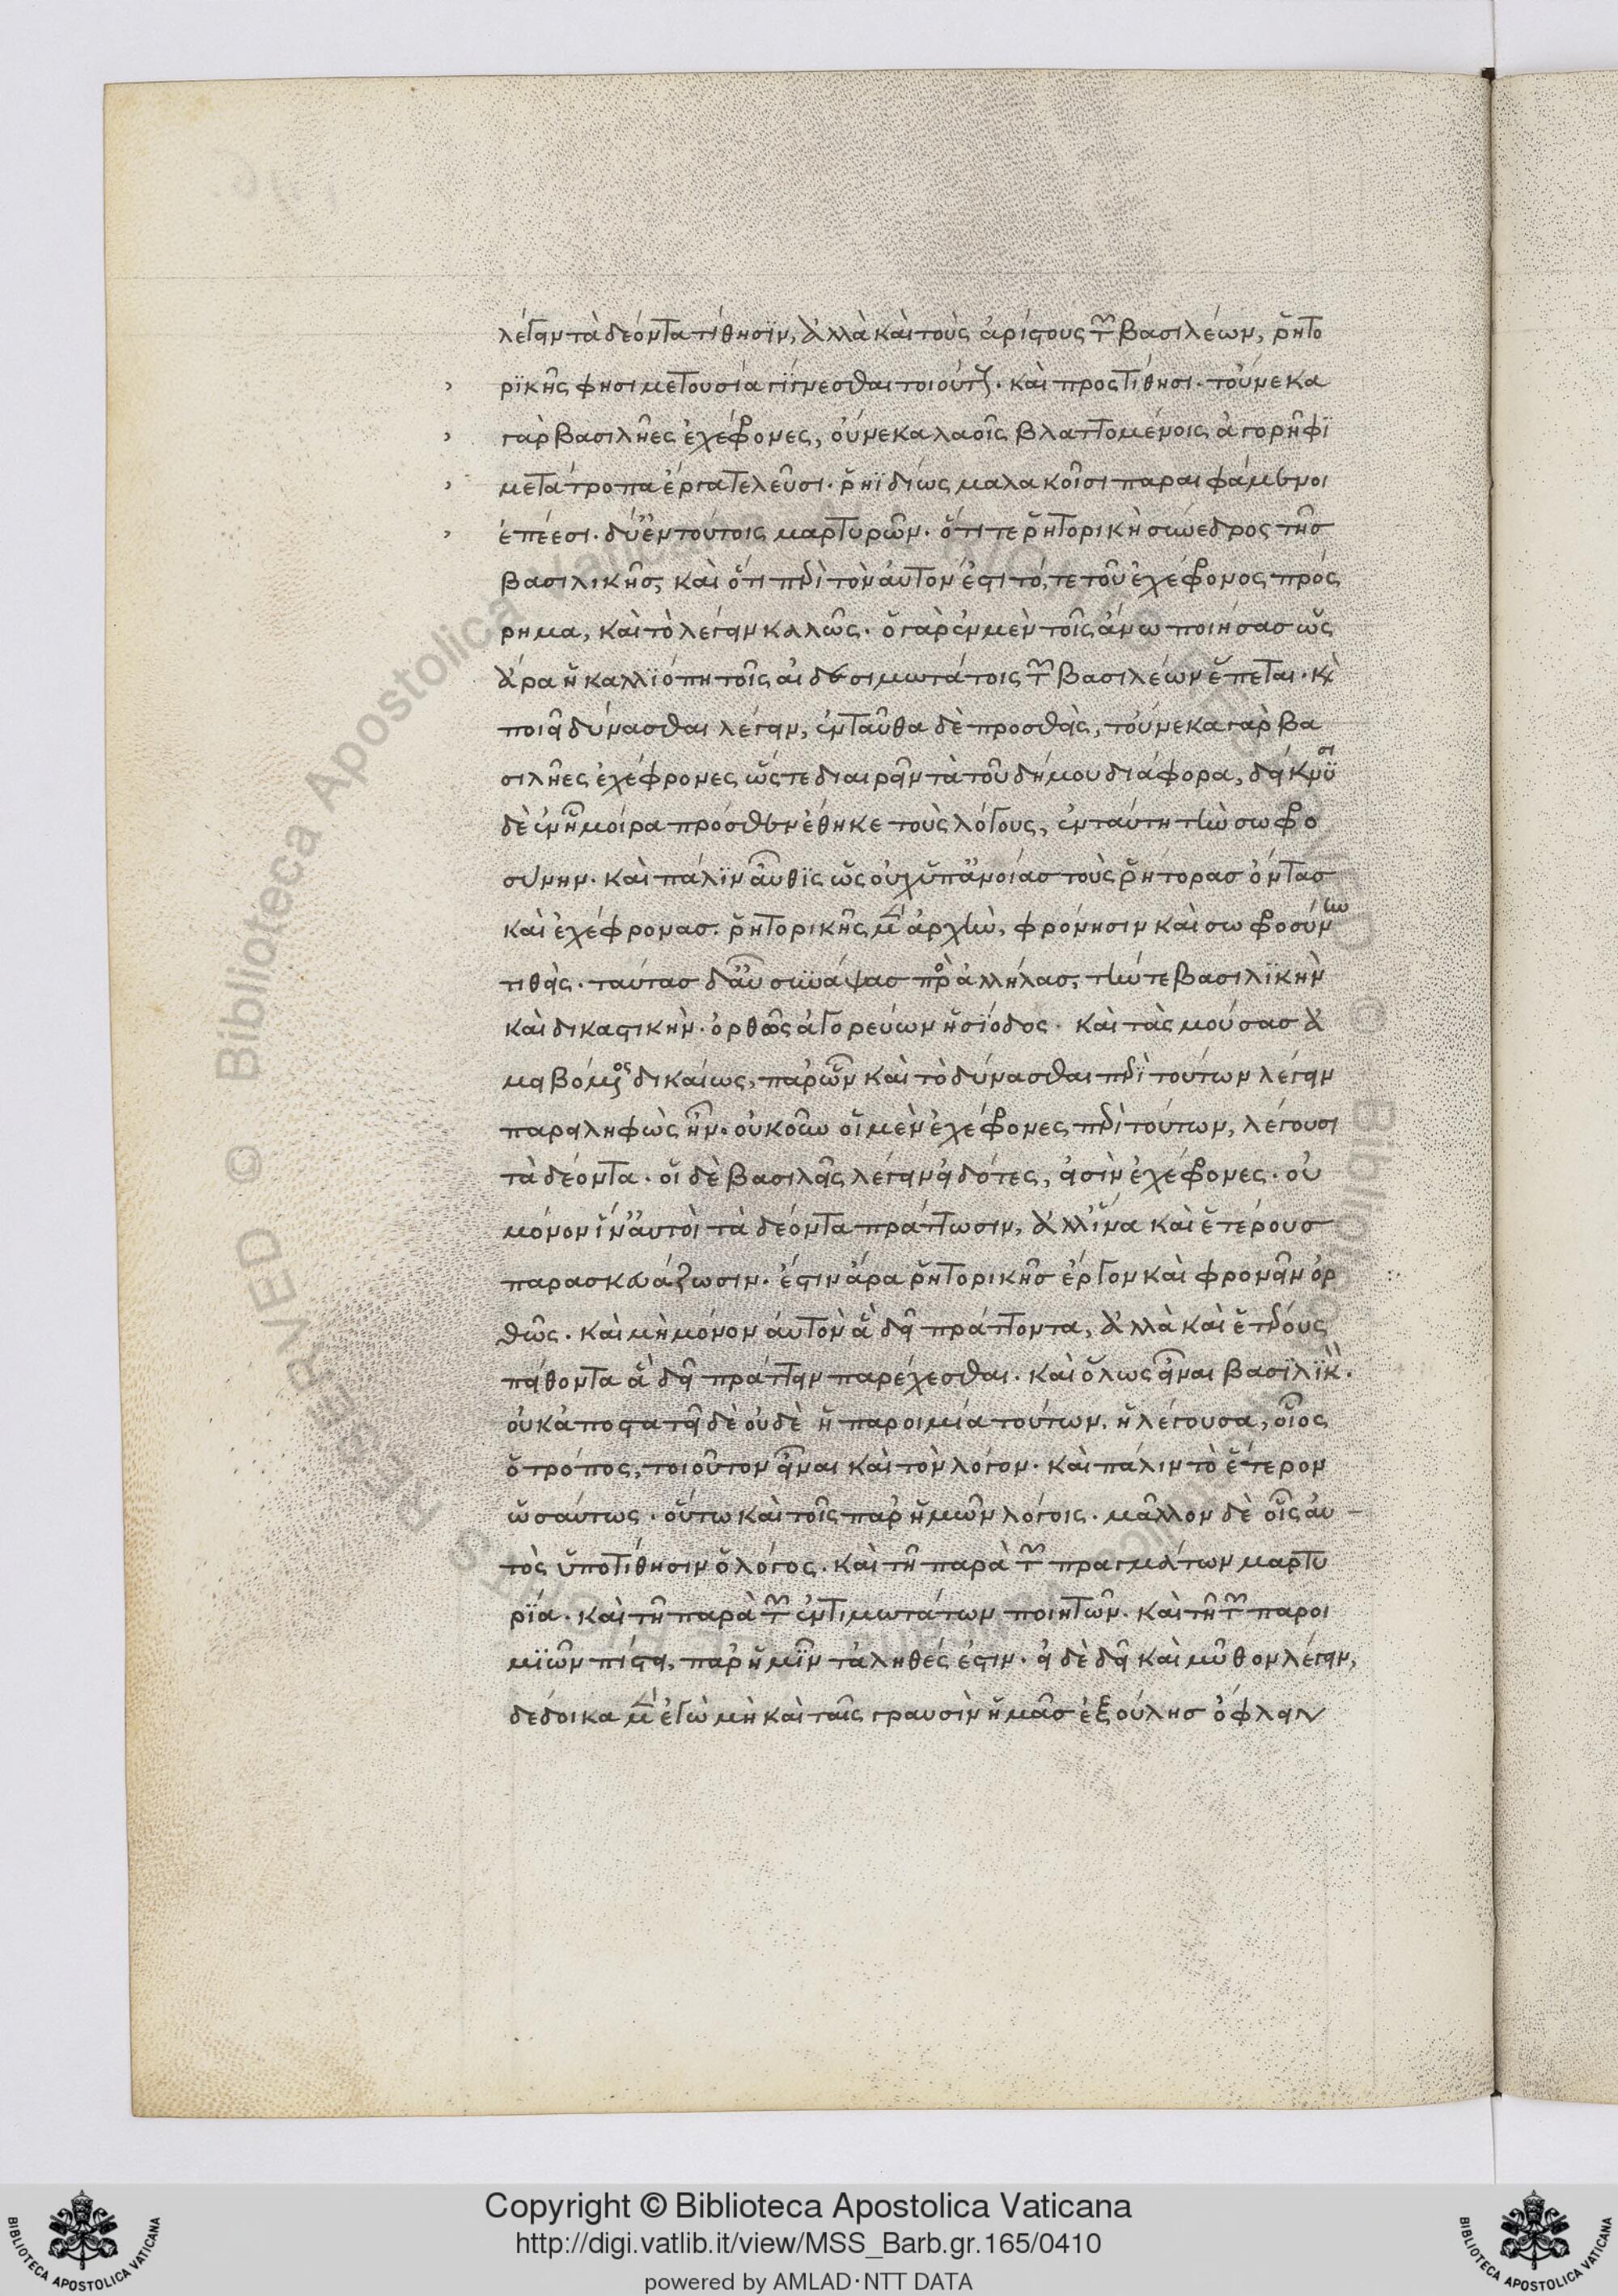 λέγειν τὰ δέοντα τίθησϊν, ἀλλὰ καὶ τοὺς ἀρίστους τῶν βασιλέων, ῥητο
ρϊκῆς φησι μετουσία γίγνεσθαι τοιούτους. καὶ προστίθησι. τοὔνεκα
γὰρ βασιλῆες ἐχέφρονες, οὕνεκα λαοῖς βλαπτομένοις ἀγορῆφϊ
μετάτροπα ἔργα τελεῦσι. ῥηϊδίως μαλακοῖσι παραιφάμενοι
ἐπέεσι. δύ' ἐν τούτοις μαρτυρῶν. ὅτι τε ῥητορικὴ σύνεδρος τῆσ
βασιλικῆσ, καὶ ὅτι περὶ τὸν αὐτόν ἐστι τό, τε τοῦ ἐχέφρονος πρόσ
ρημα, καὶ τὸ λέγειν καλῶς. ὃ γὰρ ἐν μὲν τοῖς ἄνω ποιήσασ ὡς
ἄρα ἡ καλλϊόπη τοῖς αἰδεσιμωτάτοις τῶν βασιλέων ἕπεται. καὶ
ποιεῖ δύνασθαι λέγειν, ἐνταῦθα δὲ προσθεὶς, τοὔνεκα γὰρ βα
σιλῆες ἐχέφρονες ὥστε διαιρεῖν τὰ τοῦ δήμου διάφορα, δείκνυσϊ
δὲ ἐν ᾗ μοίρα πρόσθεν ἔθηκε τοὺς λόγους, ἐν ταύτη τὴν σωφρο
σύνην. καὶ πάλϊν αὖθϊς ὡς οὐχ ὑπ' ἀνοίασ τοὺς ῥήτορασ ὄντασ
καὶ ἐχέφρονασ. ῥητορικῆς μὲν ἀρχὴν, φρόνησιν καὶ σωφροσύνην
τιθεὶς. ταύτασ δ' αὖ συνάψασ πρὸς ἀλλήλασ, τήν τε βασιλϊκὴν
καὶ δικαστικὴν. ὀρθῶς ἀγορεύων ἡσίοδος. καὶ τὰς μούσασ ἀ
μειβόμενος δικαίως, παρ' ὧν καὶ τὸ δύνασθαι περὶ τούτων λέγειν
παρειληφὼς ἦν. οὐκοῦν οἱ μὲν ἐχέφρονες περὶ τούτων, λέγουσι
τὰ δέοντα. οἱ δὲ βασιλεῖς λέγειν εἰδότες, εἰσὶν ἐχέφρονες. οὐ
μόνον ἵν' αὐτοὶ τὰ δέοντα πράττωσιν, ἀλλ' ἵνα καὶ ἑτέρουσ
παρασκευάζωσιν. ἔστιν ἄρα ῥητορικῆσ ἔργον καὶ φρονεῖν ὀρ
θῶς. καὶ μὴ μόνον αὐτὸν ἃ δεῖ πράττοντα, ἀλλὰ καὶ ἑτέρους
πείθοντα ἃ δεῖ πράττειν παρέχεσθαι. καὶ ὅλως εἶναι βασϊλϊκὸν.
οὐκ ἀποστατεῖ δὲ οὐδὲ ἡ παροιμία τούτων. ἡ λέγουσα, οἷος
ὁ τρόπος, τοιοῦτον εἶναι καὶ τὸν λόγον. καὶ πάλιν τὸ ἕτερον
ὡσαύτως. οὕτω καὶ τοῖς παρ' ἡμῶν λόγοις. μᾶλλον δὲ οἷς αὐ
τὸς ὑποτίθησιν ὁ λόγος. καὶ τῆ παρὰ τῶν πραγμάτων μαρτυ
ρϊά. καὶ τῆ παρὰ τῶν ἐντιμωτάτων ποιητῶν. καὶ τῆ τῶν παροι
μϊῶν πίστει, παρ' ἡμῖν τἀληθές ἐστιν. εἰ δὲ δεῖ καὶ μῦθον λέγειν,
δέδοικα μὲν ἐγὼ μὴ καὶ ταῖς γραυσὶν ἡμᾶσ ἐξούλησ ὀφλεῖν
Copyright © Biblioteca Apostolica Vaticana
http://digi.vatlib.it/view/MSS_Barb.gr.165/0410
powered by AMLAD·NTT DATA
BIBLIOTECA APOSTOLICA VATICANA
BIBLIOTECA APOSTOLICA VATICANA